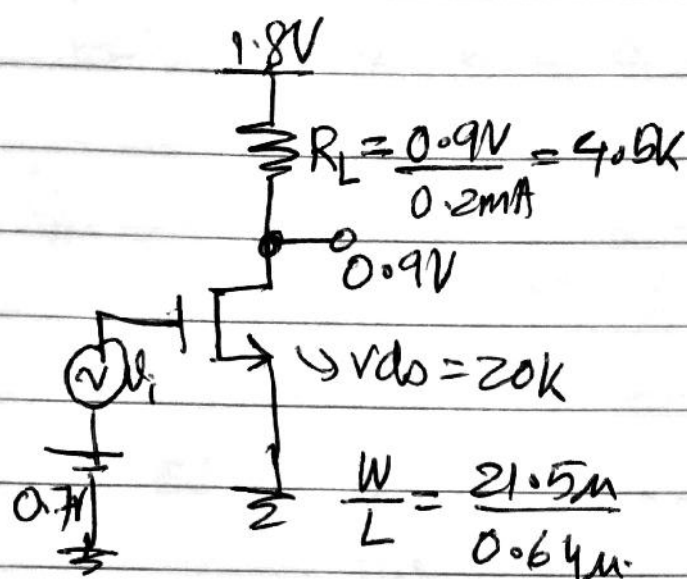 1.8V
R_L = 0.9V / 0.2mA = 4.5K
0.9V
v_i
rds = 20K
0.7V
W/L = 21.5μ / 0.64μ